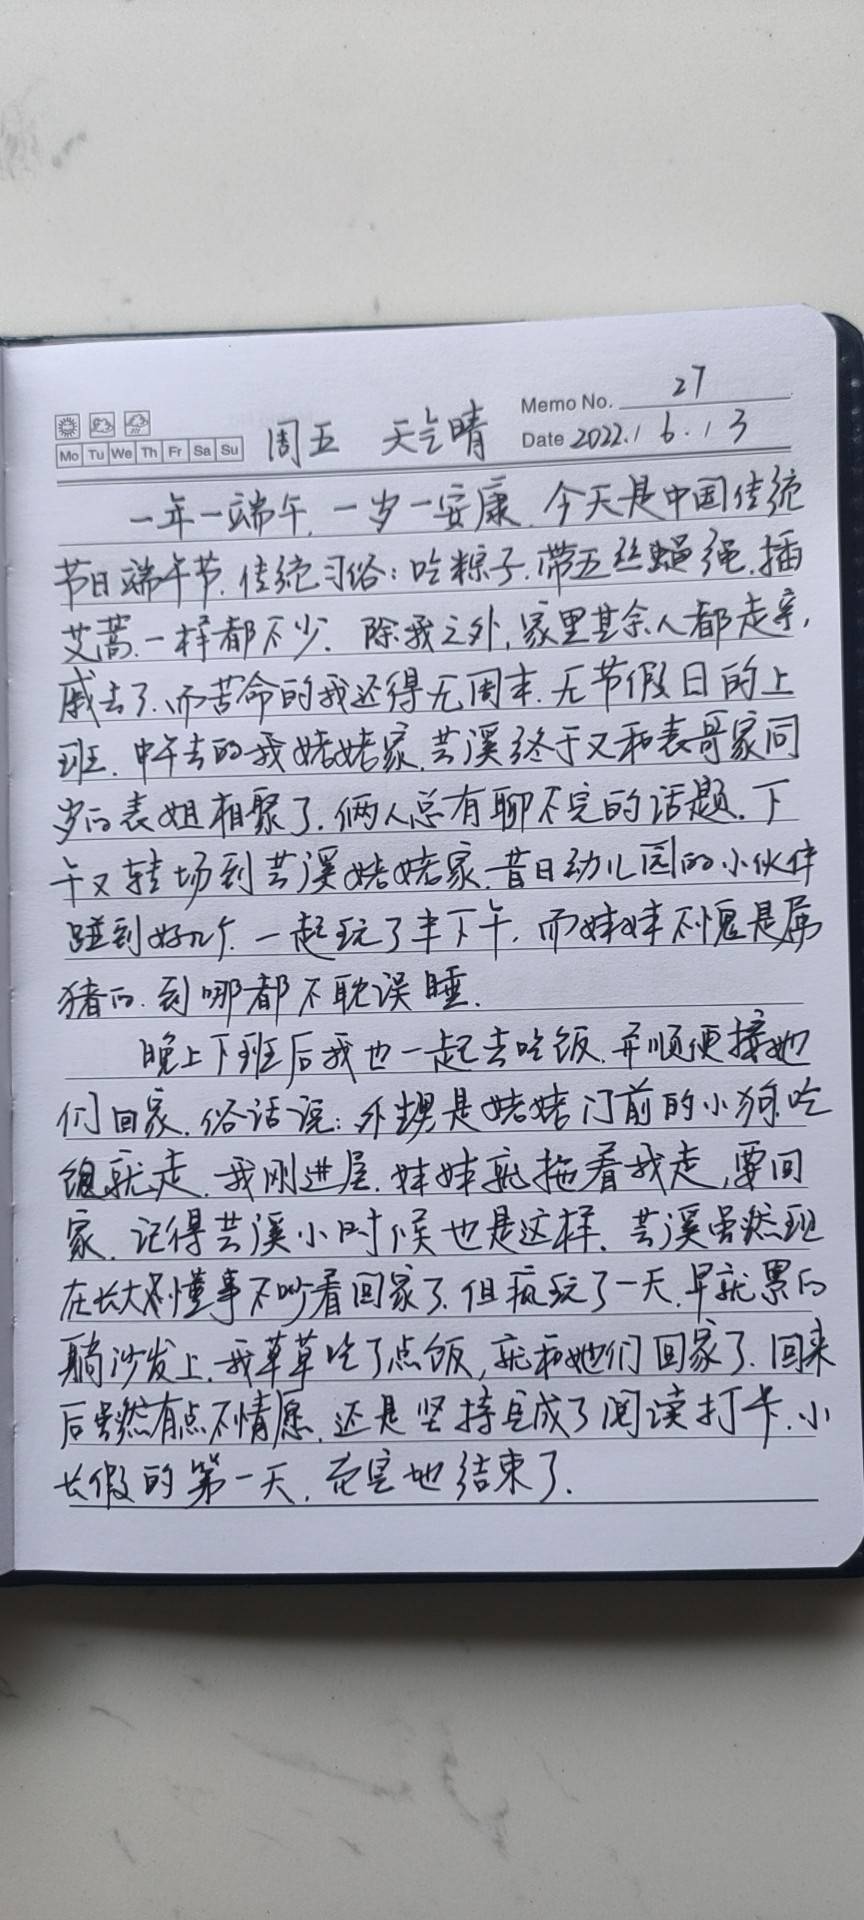 Memo No. 27
Mo Tu We Th Fr Sa Su 周五 天气晴 Date 2022.6.3
一年一端午,一岁一安康.今天是中国传统
节日端午节.传统习俗:吃粽子.带五丝蝇绳.插
艾蒿.一样都不少.除我之外,家里其余人都走亲,
戚去了.而苦命的我还得无周末.无节假日的上
班.中午去的我姥姥家.芸溪终于又和表哥家同
岁的表姐相聚了.俩人总有聊不完的话题.下
午又转场到芸溪姥姥家.昔日幼儿园的小伙伴
碰到好几个.一起玩了半下午.而妹妹不愧是属
猪的.到哪都不耽误睡.
晚上下班后我也一起去吃饭.并顺便接她
们回家.俗话说:外甥是姥姥门前的小狗吃
饱就走.我刚进屋.妹妹就拖着我走,要回
家.记得芸溪小时候也是这样.芸溪虽然现
在长大懂事不吵着回家了.但疯玩了一天.早就累的
躺沙发上.我草草吃了点饭,就和她们回家了.回来
后虽然有点不情愿.还是坚持完成了阅读打卡.小
长假的第一天.充实地结束了.